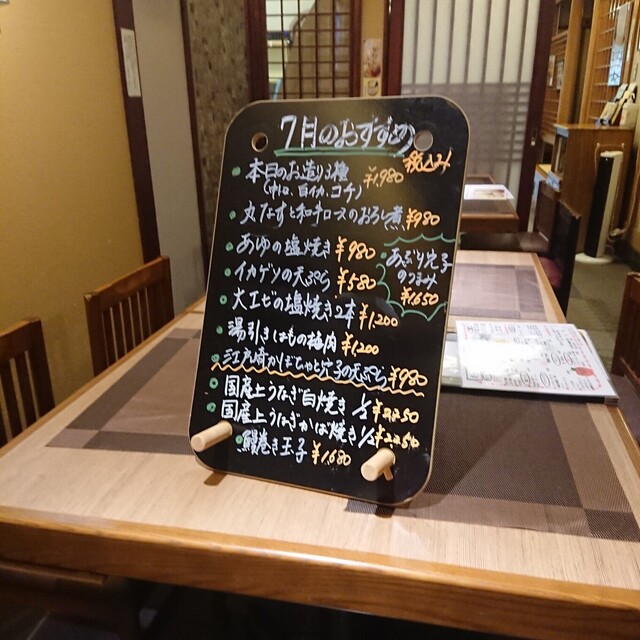 7月のおすすめ
税込み
本日のお造り3種 ¥1,980
(中トロ、白イカ、コチ)
丸なすと和牛ロースのおろし煮 ¥980
あゆの塩焼き ¥980
イカゲソの天ぷら ¥580
あぶり穴子
のつまみ
¥1,650
大エビの塩焼き2本 ¥1,200
湯引きはもの梅肉 ¥1,200
江戸崎かぼちゃと穴子の天ぷら ¥980
国産上うなぎ白焼き 1/2 ¥2250
国産上うなぎかば焼き 1/2 ¥2250
鰻巻き玉子 ¥1,680